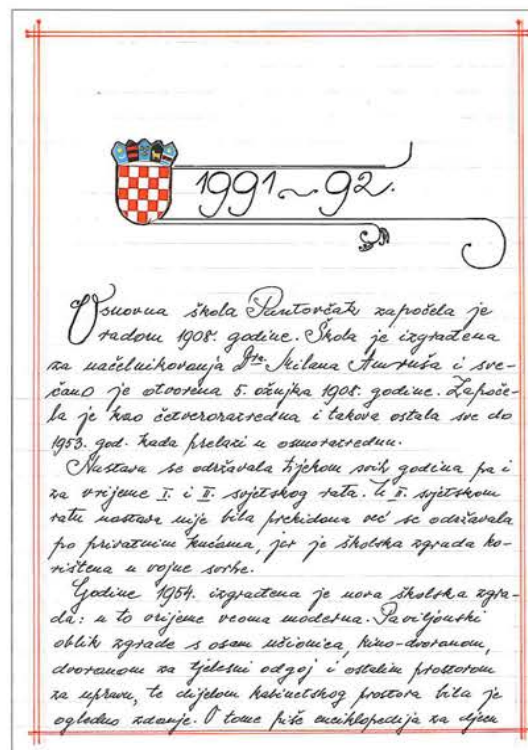 1991~92.
Osnovna škola Pantovčak započela je
radom 1908. godine. Škola je izgrađena
za načelnikovanja Dra. Milana Amruša i sve-
čano je otvorena 5. ožujka 1908. godine. Započe-
la je kao četverorazredna i takova ostala sve do
1953. god. kada prelazi u osmorazrednu.
Nastava se održavala tijekom svih godina pa i
za vrijeme I. i II. svjetskog rata. U II. svjetskom
ratu nastava nije bila prekidana već se održavala
po privatnim kućama, jer je školska zgrada ko-
rištena u vojne svrhe.
Godine 1954. izgrađena je nova školska zgra-
da: u to vrijeme veoma moderna. Paviljonski
oblik zgrade s osam učionica, kino-dvoranom,
dvoranom za tjelesni odgoj i ostalim prostorom
za upravu, te dijelom kabinetskog prostora bila je
ogledno zdanje. O tome piše enciklopedija za djecu